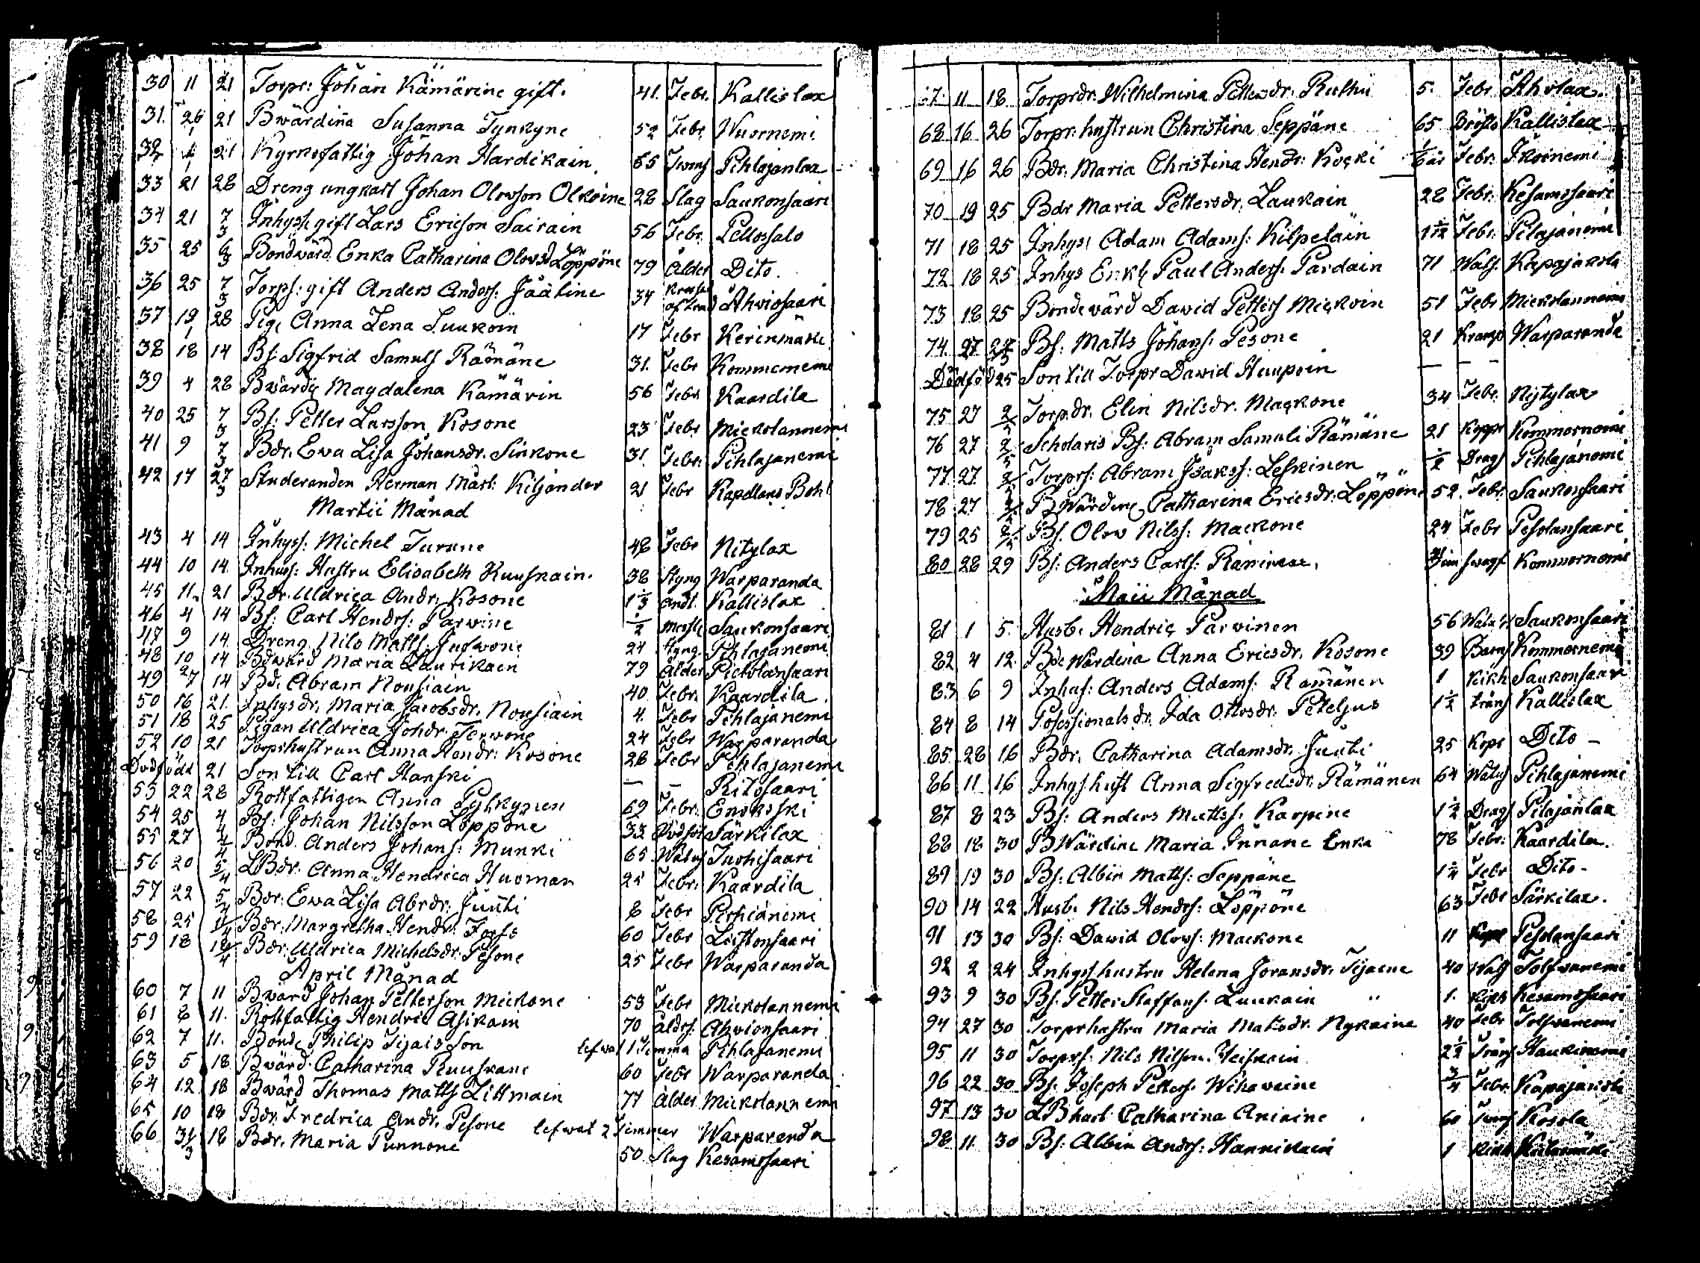 30 11 21 Torpr: Johan Kämäräine gift. 41. Febr. Kallislax
31. 26 21 Bwärdiña Susanna Tynkyne 52 Febr Wuornemi
32 21 Kyrkofattig Johan Hardikain 65 Pihlajanlax
33 21 28 Dreng ungkarl Johan Olovson Olkoine 28 Slag Saukonsaari
34 21 7/3 Inhyses gift Lars Ericson Sairain 56 Febr. Pellossalo
35 25 Bondwärd. Enka Catharina Olovsd. Löppöne 79 Ålder Dito.
36 25 7/3 Torps: gift Anders Anders: Jäätine 34 Ahviosaari
37 19 28 Pig. Anna Lena Luukoin 17 Febr Kerimäki
38 18 14 Bs. Sigfrid Samuls Rämäne 31. Febr Kommernemi
39 4 28 Bwärdç Magdalena Kämärin 56 Febr Kaardila
40 25 7/3 Bs: Petter Larsson Kosone 23 Febr Mickolannemi
41 9 7/3 Bdr. Ewa Lisa Johansdr. Sinkone 31. Febr. Pihlajanemi
42 17 27/3 Studeranden Herman Mart: Kiljander 21 Febr Kapellans Bohl
Martii Månad
43 4 14 Inhyss: Michel Turune 48 Febr Nitylax
44 10 14. Inhys: Hustru Elisabeth Ruuskain. 38 Styng Warparanda
45 11. 21 Bdr. Uldrica Andr. Kosone 1 1/3 Kallislax
46 4 14 Bs. Carl Hendrs: Parwine Saukonsaari
47 9 14 Dreng Nils Matts. 24 Styng Pihlajanemi
48 10 14 Bdwärd Maria Lautikain 79 Ålder Pietolansaari
49 27 14 Bd. Abram Nousiain 40 Febr. Kaardila
50 16 21. Inhysdr. Maria Jacobsdr. Nousiain 4. Febr Pihlajanemi
51 18 25 Pigan Uldrica Johdr. Terwone 24 Febr Warparanda
52 10 21 Torpshustrun Anna Hendr: Kosone 28 Febr Pihlajanemi
Dödfödd 21 Son till Carl Hanski — — Ritosaari
53 22 28 Rottfattigen Anna Pylkynen 69 Febr. Enokoski
54 25 Bs: Johan Nilsson Löppöne 33 Särkilax
55 27 Bond. Anders Johans: Munki 65 Watus Tuohisaari
56 20 5/4 LBdr: Anna Hendrica Huoman 25 Febr: Kaardila
57 22 5/4 Bdr: Ewa Lisa Abrdr: Juuti 8 Febr Pirhianemi
58 25 Bdr: Margretha Hendr: Forss 60 Febr Leistonsaari
59 18 18/4 Bdr: Uldrica Michelsdr. Pesone 25 Febr Warparanda
April Månad
60 7 11 Bwärd Johan Petterson Mickone 53 Febr Mickolannemi
61 8 11. Rottfattig Hendric Asikain 70 åldrs. Ahvionsaari
62 7 11. Bonde Philip Tijais Son lefwat 1 Timma Pihlajanemi
63 5 18. Bwärd Catharina Ruuskane 60 Febr Warparanda
64 12 18 Bwärd Thomas Matts Littmain 77 Ålder Mickolannemi
65 10 18 Bdr. Fredrica Andr. Pesone lefwat 2 Timmar Warparanda
66 31/3 18 Bdr. Maria Punnone 50 Slag Kesamosaari
67 11 18 Torprdr. Wilhelmina Pettersdr. Ruthu 5. Febr. Ahvlax.
68 16 26 Torpr: hustrun Christina Seppäne 65 Bröstv Kallislax
69 16 26 Bdr. Maria Christina Hendr: Kocki Febr. Ikoinemi
70 19 25 Bdr Maria Pettersdr. Laukain 28 Febr. Kesamosaari
71 18 25 Inhyss Adam Adams: Kilpeläin Febr. Pilajanemi
72 18 25 Inhys Enkl Paul Anders: Pardain 71 Watts. Kapajakola
73 18 25 Bondewärd Dawid Petters Mickoin 51 Febr Mickolannemi
74 27 Bs: Matts Johans: Pesone 21 Kramp Warparanda
Dödföd 25 Son till Torpr Dawid Haupoin — —
75 27 Torpdr. Elin Nilsdr. Mackone 34 Febr. Nytylax
76 27 Scholaris Bs: Abram Samuli Rämäne 21 Koppr Kommornemi
77 27 Torprs: Abram Isaks: Leskinen 1/2 Drags Pihlajanemi
78 27 BWärdinç Catharina Ericsdr. Löppöne 52. Febr. Saukonsaari
79 25 Bs. Olov Nilss: Mackone 24 Febr Pesolansaari
80 28 29 Bs: Anders Carls: Räminene. Kommornemi
Maii Månad
81 1 5. Husb: Hendric Parvinen 56 Watus Saukonsaari
82 4 12. Bde Wärdina Anna Ericsdr. Kosone 39 Barns Kommornemi
83 6 9 Inhus: Anders Adams: Rämänen 1 Kikh Saukonsaari
84 8 14 Pofessionals dr. Ida Ottosdr. Peteljus 1 1/2 Trånj Kallislax
85 28 16 Bdr. Catharina Adamsdr. Juuti 25 Kopr Dito —
86 11 16 Inhys hust Anna Sigfredsdr. Rämänen 64 Watus Pihlajanemi
87 8 23 Bs: Anders Matts: Karpine 1 1/2 Drags Pilajanlax
88 18 30 BWärdine Maria Innane Enka 78 Febr: Kaardila.
89 19 30 Bs: Albin Matts: Seppäne 1 1/2 Febr Dito.
90 14 22 Husb: Nils Hendrs: Löppöne 63 Febr Särkilax.
91 13 30 Bs: Dawid Olovs: Mackone 11 Kopr Pesolansaari
92 2 24 Inhys hustru Helena Joransdr. Tijaene 40 Watt Tolfvanemi
93 9 30 Bs: Petter Staffans: Luukain 1. Kikh Kesamosaari
94 27 30 Torprhustru Maria Matsdr. Nykäine 40 Febr Tolfvanemi
95 11 30 Torprs: Nils Nilson Heiskain 2 1/2 Trånj Haukinemi
96 22 30 Bs. Joseph Petters: Wihavaine 3/4 Febr. Kapajakola
97 13 30 LBhust Catharina Aniaine 60 Kosola
98 11 30 Bs: Albin Andrs: Hannikain 1 Kikh